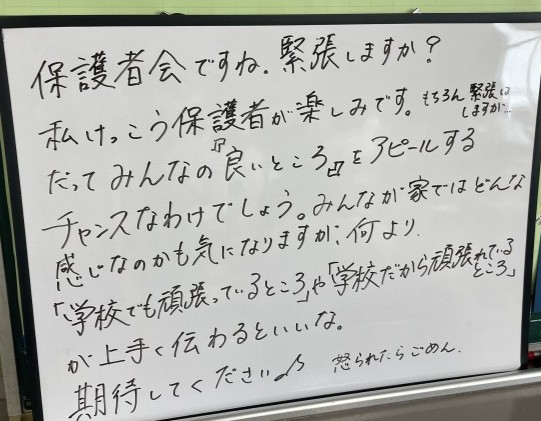 保護者会ですね。緊張しますか？
私けっこう保護者が楽しみです。もちろん緊張はしますが…
だってみんなの『良いところ』をアピールする
チャンスなわけでしょう。みんなが家ではどんな
感じなのかも気になりますが、何より、
「学校でも頑張っているところ」や「学校だから頑張れているところ」
が上手く伝わるといいな。
期待してください♪ 怒られたらごめん。